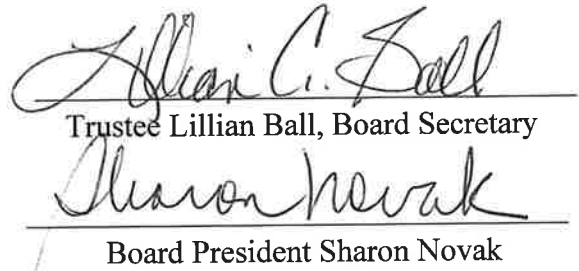 Lillian C. Ball
Trustee Lillian Ball, Board Secretary
Sharon Novak
Board President Sharon Novak